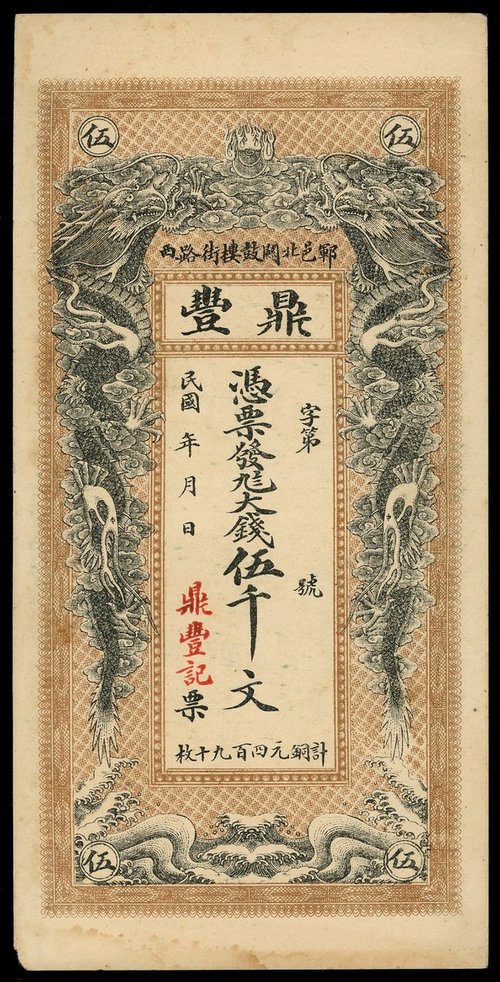 伍
伍
鄆邑北關鼓樓街路西
鼎豐
字第 號
憑票發九八大錢伍千文
民國 年 月 日
鼎豐記票
計銅元四百九十枚
伍
伍